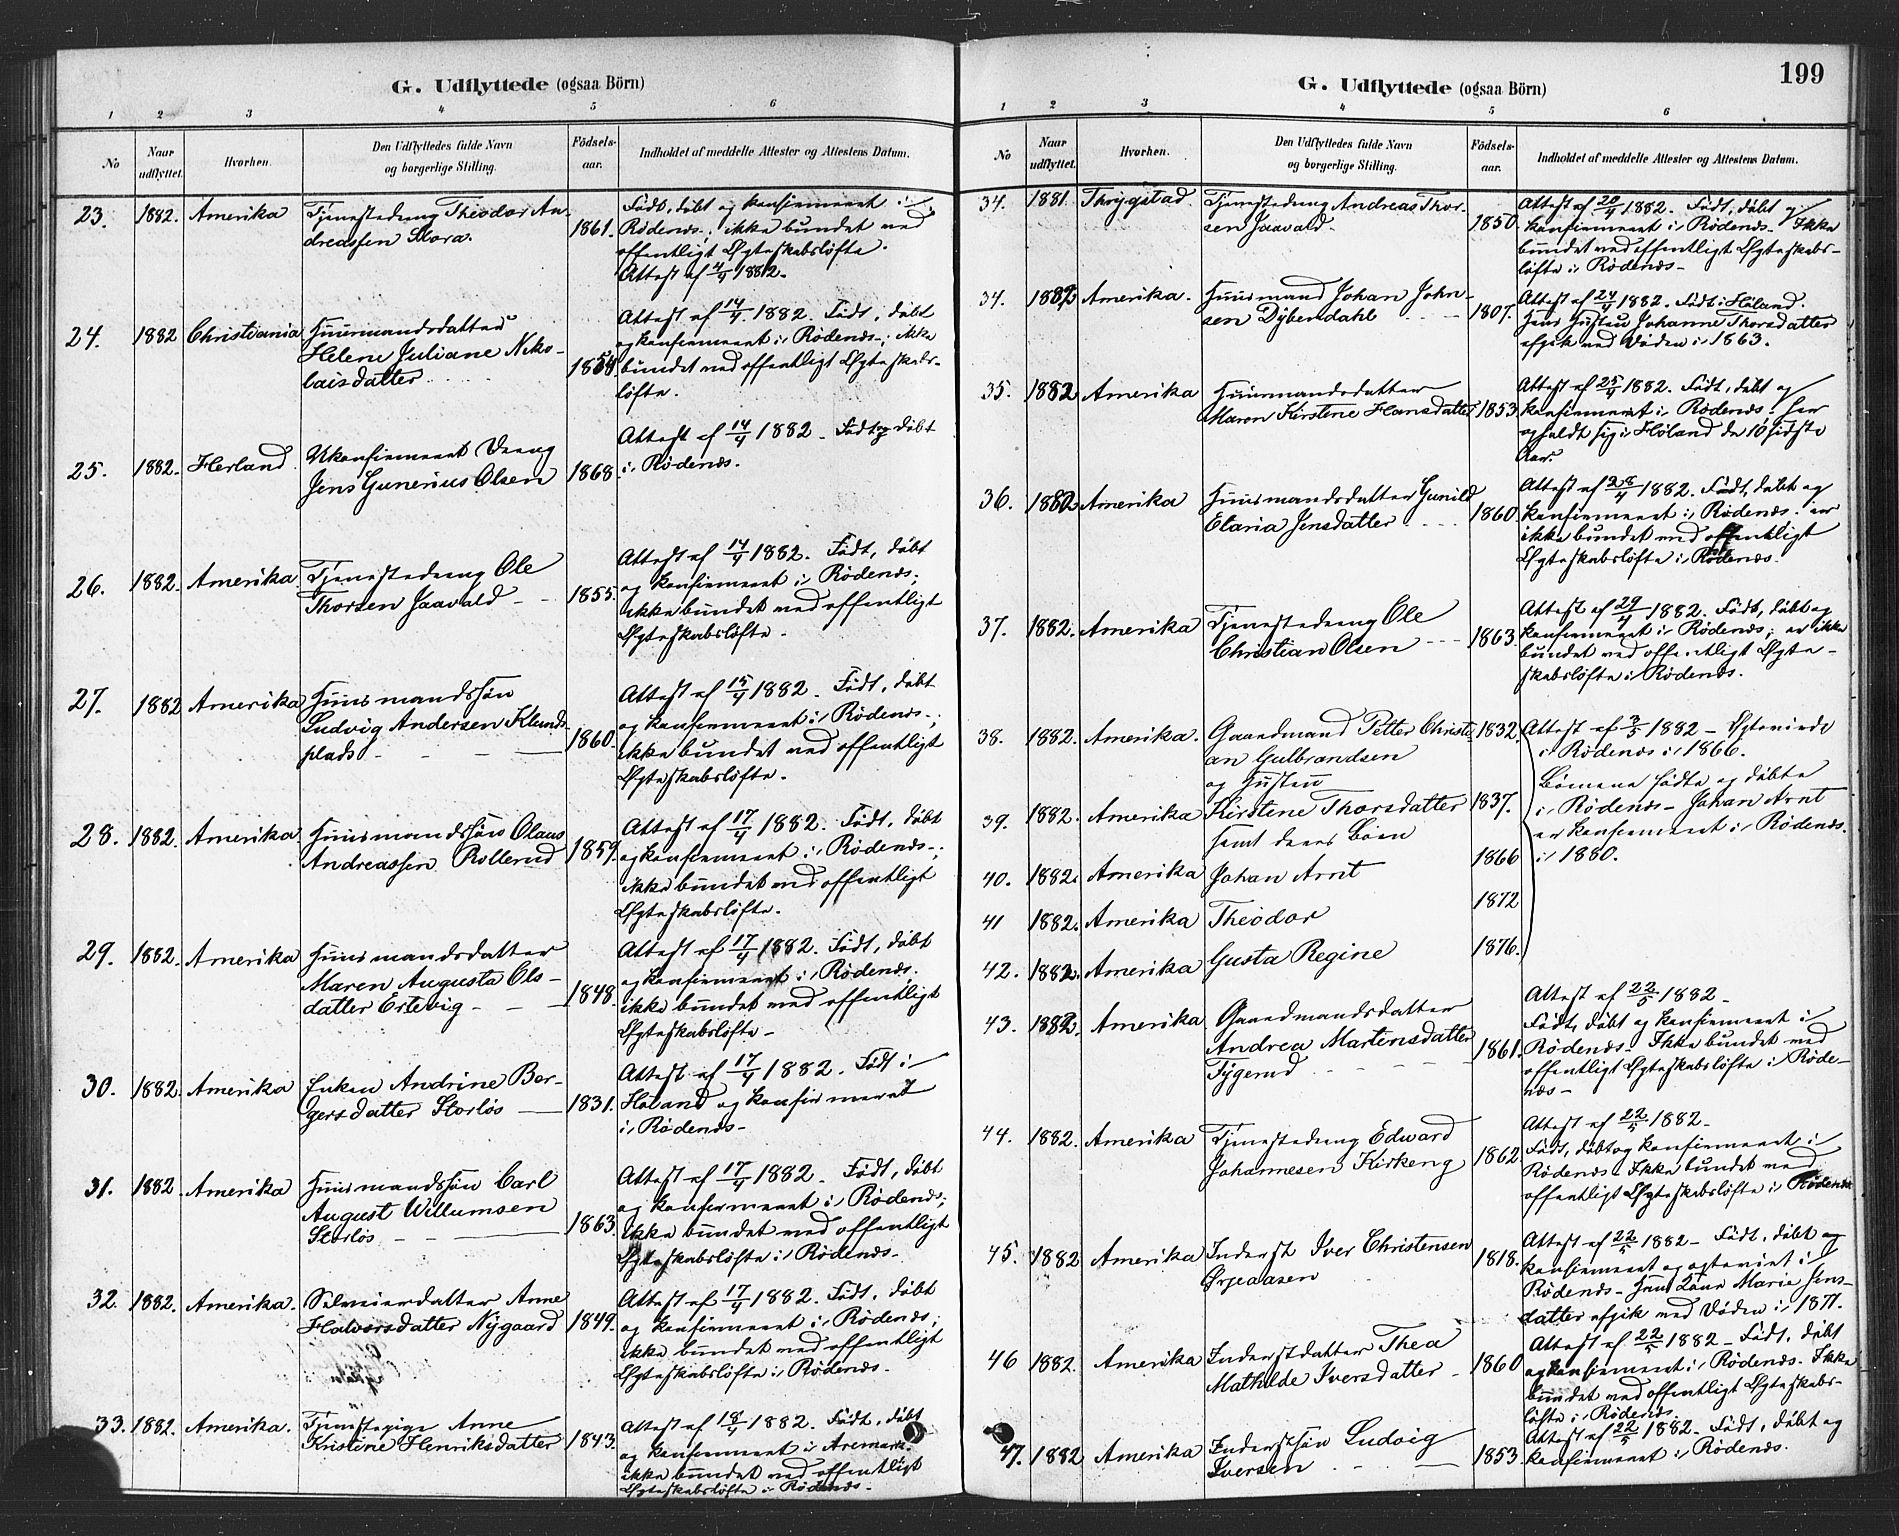 G. Udflyttede (ogsaa Börn)
1 2 3 4 5 6
No
Naar udflyttet.
Hvorhen.
Den Udflyttedes fulde Navn og borgerlige Stilling.
Födsels-aar.
Indholdet af meddelte Attester og Attestens Datum.
23. 1882. Amerika Tjenestedreng Theodor An-
dreassen Slora. 1861.
Født, døbt og konfirmeret i
Rødenæs; ikke bundet ved
offentligt Ægteskabsløfte.
Attest af 4/4 1882.
24. 1882 Christiania Huusmandsdatter
Helene Juliane Niko-
laisdatter 1854
Attest af 14/4 1882. Født, døbt
og konfirmeret i Rødenæs; ikke
bundet ved offentligt Ægteskabs-
løfte.
25. 1882. Herland. Ukonfirmeret Dreng
Jens Gunerius Olsen 1868
Attest af 14/4 1882. Født og døbt
i Rødenæs.
26. 1882. Amerika Tjenestedreng Ole
Thorsen Jaavald 1855.
Attest af 14/4 1882. Født, døbt
og konfirmeret i Rødenæs;
ikke bundet ved offentligt
Ægteskabsløfte.
27. 1882 Amerika Huusmandssøn
Ludvig Andersen Klunds
plads 1860.
Attest af 15/4 1882. Født, døbt
og konfirmeret i Rødenæs;
ikke bundet ved offentligt
Ægteskabsløfte.
28. 1882. Amerika. Huusmandssøn Olaus
Andreassen Rollerud 1859
Attest af 17/4 1882. Født, døbt
og konfirmeret i Rødenæs;
ikke bundet ved offentligt
Ægteskabsløfte.
29. 1882. Amerika Huusmandsdatter
Maren Augusta Ols-
datter Ertevig 1848.
Attest af 17/4 1882. Født, døbt
og konfirmeret i Rødenæs;
ikke bundet ved offentligt
Ægteskabsløfte
30. 1882. Amerika Enken Andrine Ber-
gersdatter Storløs 1831.
Attest af 17/4 1882. Født i
Høland og konfirmeret
i Rødenæs
31. 1882. Amerika Huusmandssøn Carl
August Willumsen
Storløs 1863
Attest af 17/4 1882. Født, døbt
og konfirmeret i Rødenæs;
ikke bundet ved offentligt
Ægteskabsløfte i Rødenæs
32. 1882. Amerika. Selveierdatter Anne
Halvorsdatter Nygaard 1849.
Attest af 17/4 1882. Født, døbt
og konfirmeret i Rødenæs;
ikke bundet ved offentligt
Ægteskabsløfte i Rødenæs
33. 1882. Amerika. Tjenestepige Anne
Kristine Henriksdatter 1843.
Attest af 18/4 1882. Født, døbt
og konfirmeret i Aremark.
ikke bundet ved offentligt
Ægteskabsløfte i Rødenæs
G. Udflyttede (ogsaa Börn)
199
1 2 3 4 5 6
No
Naar udflyttet.
Hvorhen.
Den Udflyttedes fulde Navn og borgerlige Stilling.
Födsels-aar.
Indholdet af meddelte Attester og Attestens Datum.
34. 1881. Thrygstad. Tjenestedreng Andreas Thor-
sen Jaavald 1850.
Attest af 20/4 1882. Født, døbt og
konfirmeret i Rødenæs. Ikke
bundet ved offentligt Ægteskabs-
løfte i Rødenæs
34. 1882 Amerika. Huusmand Johan John-
sen Dybendahl 1807.
Attest af 24/4 1882. Født i Høland.
Hans Hustru Johanne Thorsdatter
afgik ved Døden i 1863.
35. 1882 Amerika Huusmandsdatter
Maren Kirstene Hansdatter 1853
Attest af 25/4 1882. Født, døbt og
konfirmeret i Rødenæs. har
opholdt sig i Høland de 10 sidste
Aar.
36. 1882 Amerika Huusmandsdatter Gunild
Elaria Jensdatter 1860
Attest af 28/4 1882. Født, døbt og
konfirmeret i Rødenæs. er
ikke bundet ved offentligt
Ægteskabsløfte i Rødenæs.
37. 1882. Amerika Tjenestedreng Ole
Christian Olsen 1863
Attest af 29/4 1882. Født, døbt og
konfirmeret i Rødenæs; er ikke
bundet ved offentligt Ægte-
skabsløfte i Rødenæs.
38. 1882. Amerika. Gaardmand Petter Christi-
an Gulbrandsen 1832.
og Hustru
Attest af 3/5 1882 – Ægteviede
i Rødenæs i 1866.
39. 1882. Amerika Kirstene Thorsdatter 1837.
samt deres Børn
Børnene fødte og døbte
i Rødenæs – Johan Arnt
er konfirmeret i Rødenæs.
i 1880.
40. 1882. Amerika Johan Arnt 1866
41 1882. Amerika Theodor 1872
42. 1882. Amerika Gusta Regine 1876.
43. 1882. Amerika Gaardmandsdatter
Andrea Martinsdatter
Tygerud 1861.
Attest af 22/5 1882
Født, døbt og konfirmeret i
Rødenæs. Ikke bundet ved
offentligt Ægteskabsløfte i Røde-
næs
44. 1882. Amerika Tjenestedreng Edward
Johannesen Kirkeng 1862
Attest af 22/5 1882.
Født, døbt og konfirmeret i
Rødenæs. Ikke bundet ved
offentligt Ægteskabsløfte i Rødenæs
45. 1882 Amerika Inderst Iver Christensen
Ørjeaasen 1818.
Attest af 22/5 1882 – Født, døbt og
konfirmeret og ægteviet i
Rødenæs – Maria Jens-
datter afgik ved Døden i 1871.
46 1882. Amerika Inderstdatter Thea
Mathilde Iversdatter 1860
Attest af 22/5 1882 – Født, døbt
og konfirmeret i Rødenæs. Ikke
bundet ved offentligt Ægteskabs-
løfte i Rødenæs
47. 1882 Amerika Inderstsøn Ludvig
Iversen 1853
Attest af 22/5 1882. Født, døbt og
konfirmeret i Rødenæs.